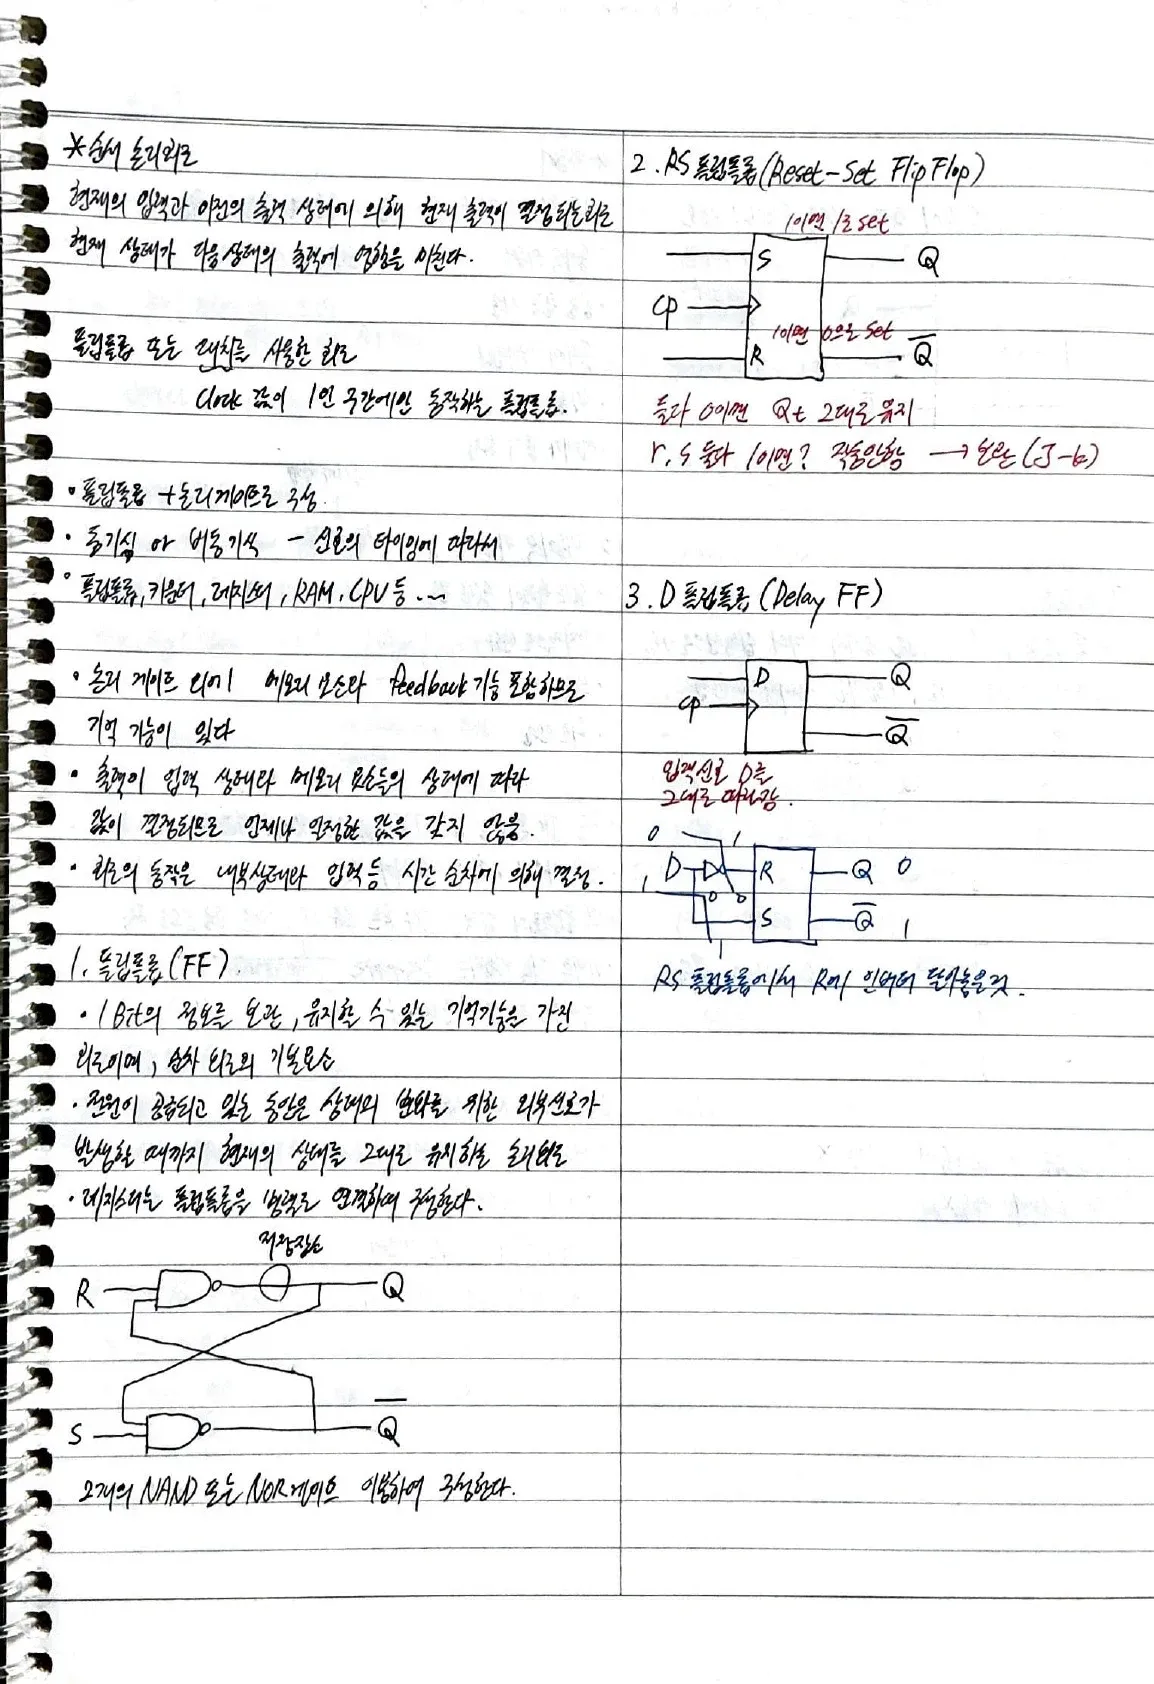 *순서 논리회로
현재의 입력과 이전의 출력 상태에 의해 현재 출력이 결정되는회로
현재 상태가 다음상태의 출력에 영향을 미친다.
플립플롭 또는 래치를 사용한 회로
Clock 값이 1인 구간에만 동작하는 플립플롭.
• 플립플롭 + 논리게이트로 구성.
• 동기식 or 비동기식 - 신호의 타이밍에 따라서
• 플립플롭, 카운터, 레지스터, RAM, CPU 등 ...
• 논리 게이트 외에 메모리 요소와 feedback 기능 포함하므로
기억 기능이 있다
• 출력이 입력 상태와 메모리 요소들의 상태에 따라
값이 결정되므로 언제나 일정한 값을 갖지 않음.
• 회로의 동작은 내부상태와 입력등 시간 순차에 의해 결정.
1. 플립플롭(FF).
• 1Bit의 정보를 보관, 유지할 수 있는 기억기능을 가진
회로이며, 순차 회로의 기본요소
• 전원이 공급되고 있는 동안은 상태의 변화를 위한 외부신호가
발생할 때까지 현재의 상태를 그대로 유지하는 논리회로
• 레지스터는 플립플롭을 병렬로 연결하여 구성한다.
저장장소
R Q
S Q
2개의 NAND 또는 NOR게이트 이용하여 구성한다.
2. RS 플립플롭(Reset-Set FlipFlop)
1이면 1로 set
S Q
CP
1이면 0으로 set
R Q
둘다 0이면 Qt 그대로 유지
r, s 둘다 1이면? 작동안함 → 보완(J-k)
3. D 플립플롭(Delay FF)
D Q
CP
Q
입력신호 D를
그대로 따라감.
0 1
D R Q 0
1 0 0
S Q 1
1
RS 플립플롭에서 R에 인버터 달아놓은것.